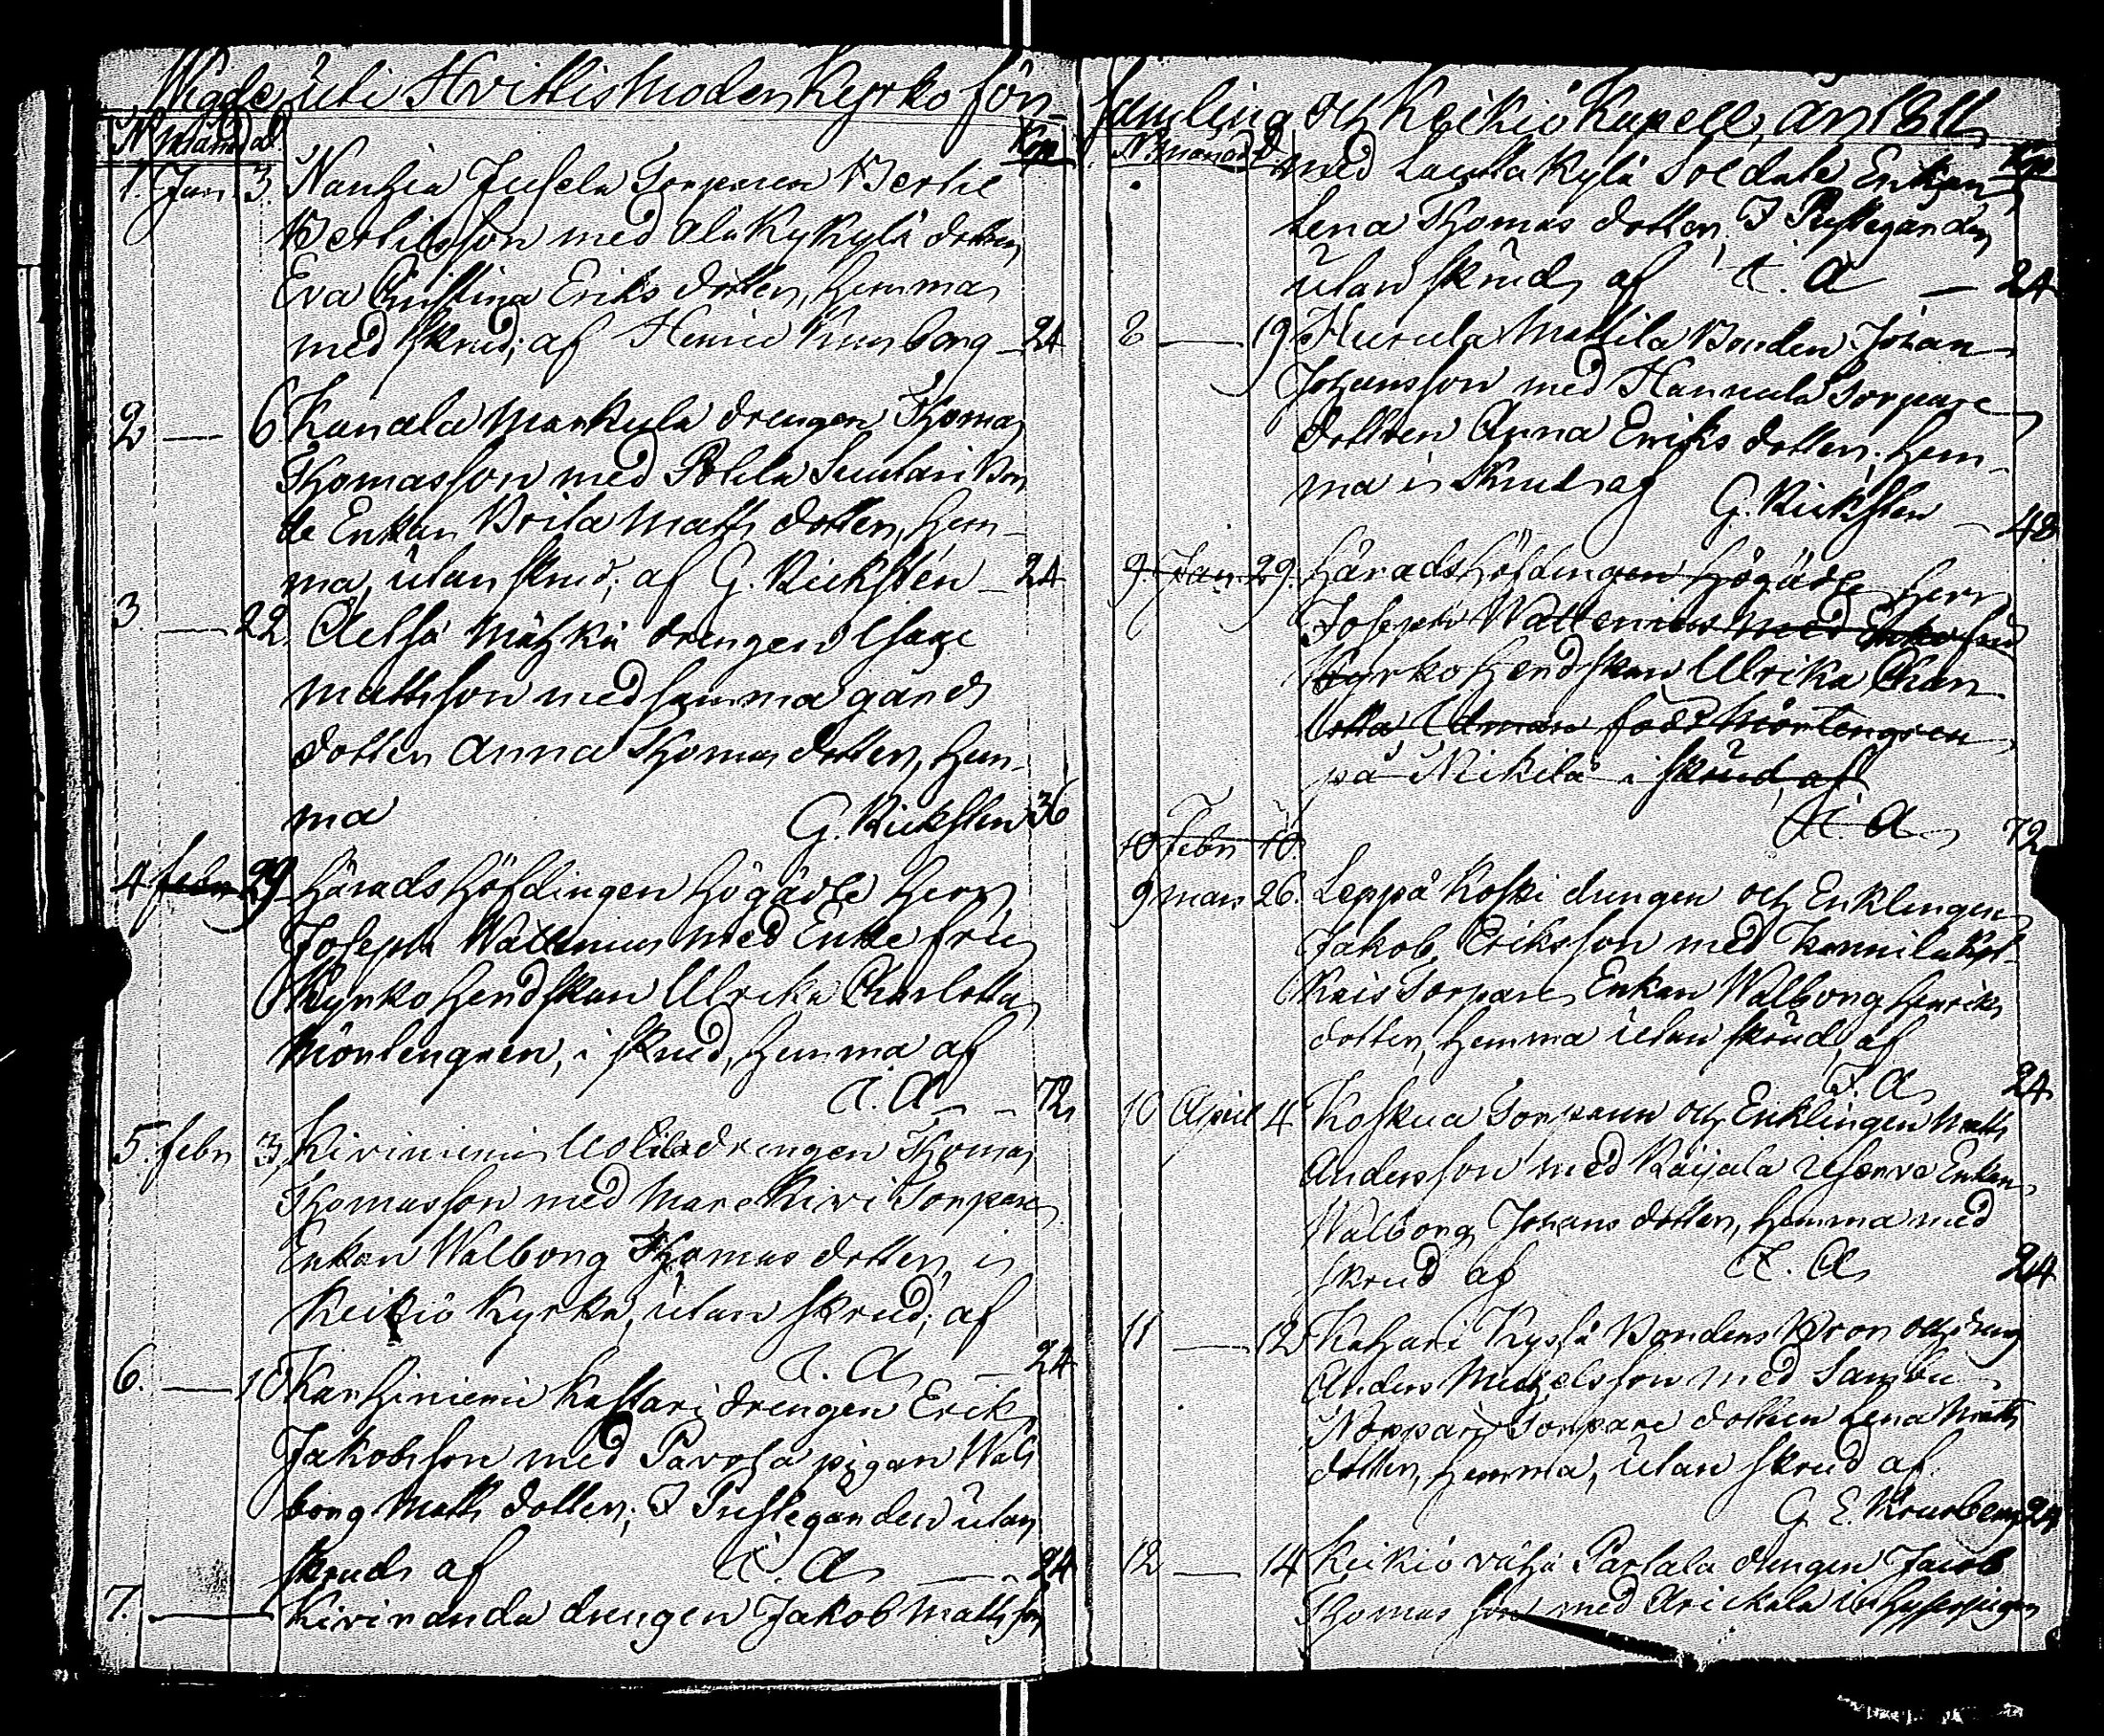 Wigde uti Hvittis Moder Kyrko för-
N Månad d. Kop
1. Jan. 3. Nanhia Jusela Torparen Bertil
Bertilsson med Ala Kykylä dottren
Eva Christina Eriks dotter, hemma
med skrud; af Henric Krusberg — 24
2 — 6 Kanala Markula drengen Thomas
Thomasson med Potila Suutari Bon
de Enkan Brita Matts dotter, hem-
ma, utan skrud; af G. Rickstén — 24
3. — 22. Aetsä drengen Isaac
Mattsson med samma gårds
dotter Anna Thomas dotter, hem-
ma G. Ricksten 36
4 febr 29 Häradshöfdingen Högädle Herr
Joseph Wallenius med Enke fru
Kyrkoherdskan Ulrika Charlotta
Mörtengren, i skrud, hemma af
I. A — 72
5. febr 3, Kiviniemi Uotila drengen Thomas
Thomasson med Mare Kiwi Torpare
Enkan Walborg Thomas dotter, i
Keikiö Kyrka, utan skrud; af
I. A. — 24
6. — 10 Karhiniemi Kassari drengen Erik
Jakobsson med Pavola pigan Wal
borg Matts dotter; I Prestegården utan
skrud af I. A. — 24
7. — Kiviranda drengen Jakob Mattsson
samling och Keikiö Kapell, år 1811
N månad d Kop
med Lautta Kylä Soldate Enkan
Lena Thomas dotter. I Prestegården
utan skrud, af I. A — 24
8 — 19 Hurula Mattila Bonden Johan
Johansson med Hannula Torpare
dottren Anna Eriks dotter; hem-
ma i skrud af
G. Ricksten — 48
9. Jan. 29. Häradshöfdingen Högädle Herr
Joseph Wallenius med Enke fru
Kyrkoherdskan Ulrika Char
lotta Uman född Mörtengren
på Nickilä i skrud, af
I. A 72
10 Febr 10.
9 mars 26. Leppä Koski drengen och Enklingen
Jakob Eriksson med
Torpare Enkan Walborg Henriks
dotter, hemma utan skrud, af
I. A 24
10 April 4 Koskua Torparen och Enklingen Matts
Andersson med Raijala Enkan
Walborg Johans dotter, hemma med
skrud af I. A 24
11 — 12 Kahari Kyssä Bondens Bror och dreng
Anders Michelsson med Sambu
Norpari Torpare dottren Lena Matts
dotter, hemma, utan skrud af
G. E. Krusberg 24
12 — 14 Keikiö vähä Partala drengen Jacob
Thomas son med Arickala